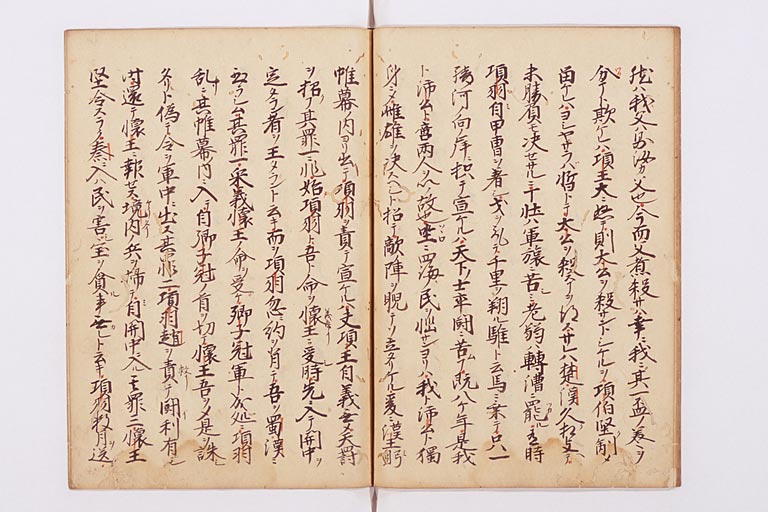 然ハ我父ハ即汝カ父也今而父ヲ煮殺サハ幸ニ我ニ其一盃ノ羹ヲ
分ケト欺ケレハ項王大ニ怒テ則太公ヲ殺サントシケルヲ項伯堅制メ
留ケレハヨシヤサラハ暫トテ太公ヲ殺ス事ヲ楚漢久相支テ
未勝負ヲ決セサルニ丁壮軍旅ニ苦ミ老弱轉漕ニ罷ル或時
項羽自甲冑ヲ著シ戈ヲ取千里ヲ翔ル騅ト云馬ニ乗テ只一
騎河ノ向岸ニ扣テ宣ケルハ天下ノ士卒闘ニ苦ム事既八ケ年是我
ト沛公ト両人ヲ以ノ故也坐ニ四海ノ民ヲ悩サンヨリハ我ト沛公ト獨
身ニメ雌雄ヲ決スヘシト招テ敵ノ陣ヲ睨テソ立タリケル爰ニ漢王躬
帷幕ノ内ヨリ出テ項羽ヲ責テ宣ケルハ夫項王自義無シテ天罰
ヲ招ク其罪一ニ非始項羽ト吾ト命ヲ懐王ニ受時先入テ関中ヲ
定タラン者ヲ王タラント云キ而ヲ項羽忽ニ約ヲ背テ吾ヲ蜀漢ニ
主タラシム其罪一宋義懐王ノ命ヲ受テ卿子冠軍ト成処ニ項羽
乱ニ其帷幕ノ内ニ入テ自卿子冠ノ首ヲ切テ懐王吾ヲメ是ヲ誅
ト偽テ令ヲ軍中ニ出ス其罪二項羽趙ヲ責テ闘利有シ
時還テ懐王ニ報セス境内ノ兵ヲ掃テ自関中ニ入ル其罪三懐王
堅令スラク秦ニ入ハ民ヲ害シ宝ヲ貪事無レト云キ項羽数月送